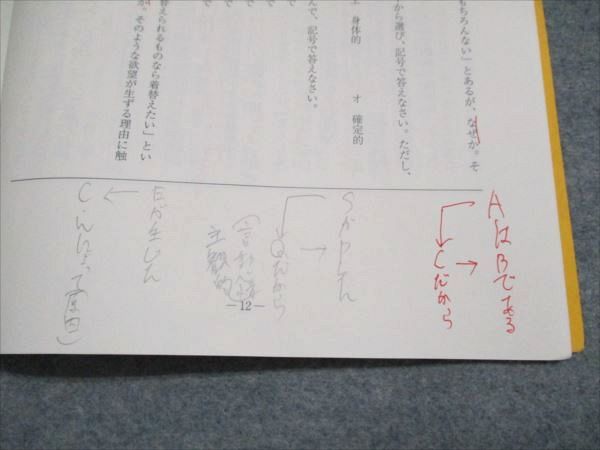 もちろんない」とあるが、なぜか。そ
から選び、記号で答えなさい。ただし、
エ 身体的 オ 確定的
んで、記号で答えなさい。
で
で
替えられるものなら着替えたい」とい
か。そのような欲望が生ずる理由に触
AはBである
Cだから
SがPした
Qだから
主観的
Eが生じた
Cによって(原因)
—12—